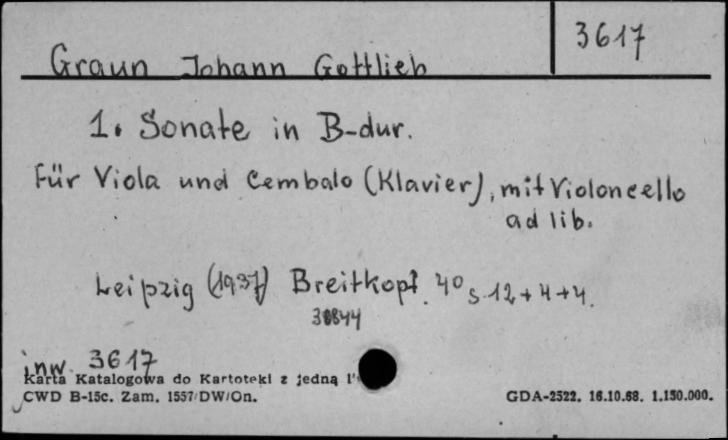 3617
Graun Johann Gottlieb
1. Sonate in B-dur.
Für Viola und Cembalo (Klavier), mit Violoncello
ad lib.
Leipzig (1937) Breitkopf. 4° s. 12+4+4.
inw. 3617
Karta Katalogowa do Kartoteki z jedną
CWD B-15c. Zam. 1557/DW/On.
GDA-2522. 16.10.68. 1.150.000.